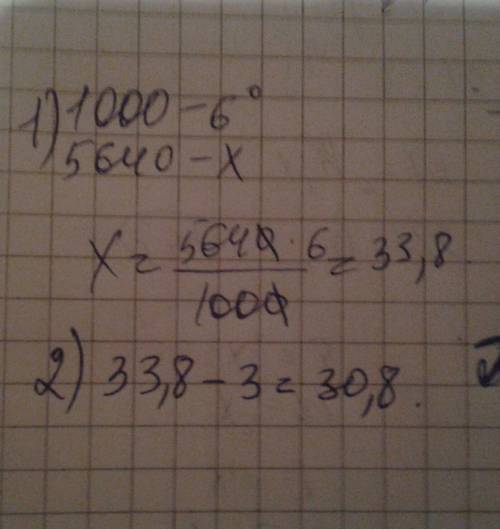 1) 1000 - 6°
5640 - x
x = 5640 · 6 / 1000 = 33,8
2) 33,8 - 3 = 30,8.